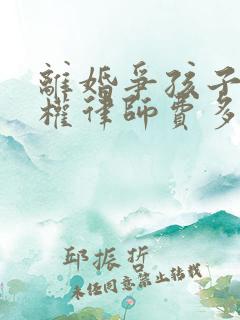 離婚爭孩子
權律師費多
邱振哲
未经同意禁止转载